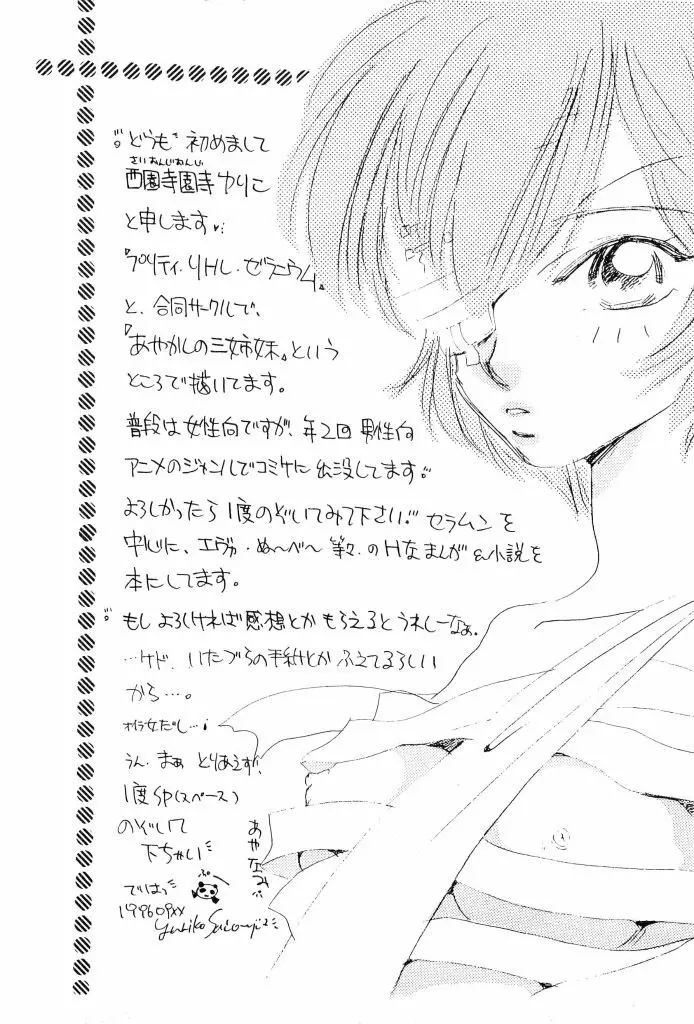 "どうも" 初めまして
さいおんじおんじ
西園寺園寺 ゆりこ
と申します
『プリティ・リトル・ゼラニウム』
と、合同サークルで、
『あやかしの三姉妹』という
ところで描いてます。
普段は女性向ですが、年2回 男性向
アニメのジャンルでコミケに出没してます。
よろしかったら 1度のぞいてみて下さい。 セラムンを
中心に、エヴァ・ぬ〜べ〜 等々・のHなまんが&小説を
本にしてます。
もし よろしければ感想とか もらえるとうれしーなぁ。
…ケド、いたづらの手紙とか ふえてるらしい
から…。
オイラ女だし…
うん、まぁ とりあえず、
1度SP(スペース)
のぞいて
下ちゃい
ぷー
あやなみ
ではっ
199609XX
Yuriko